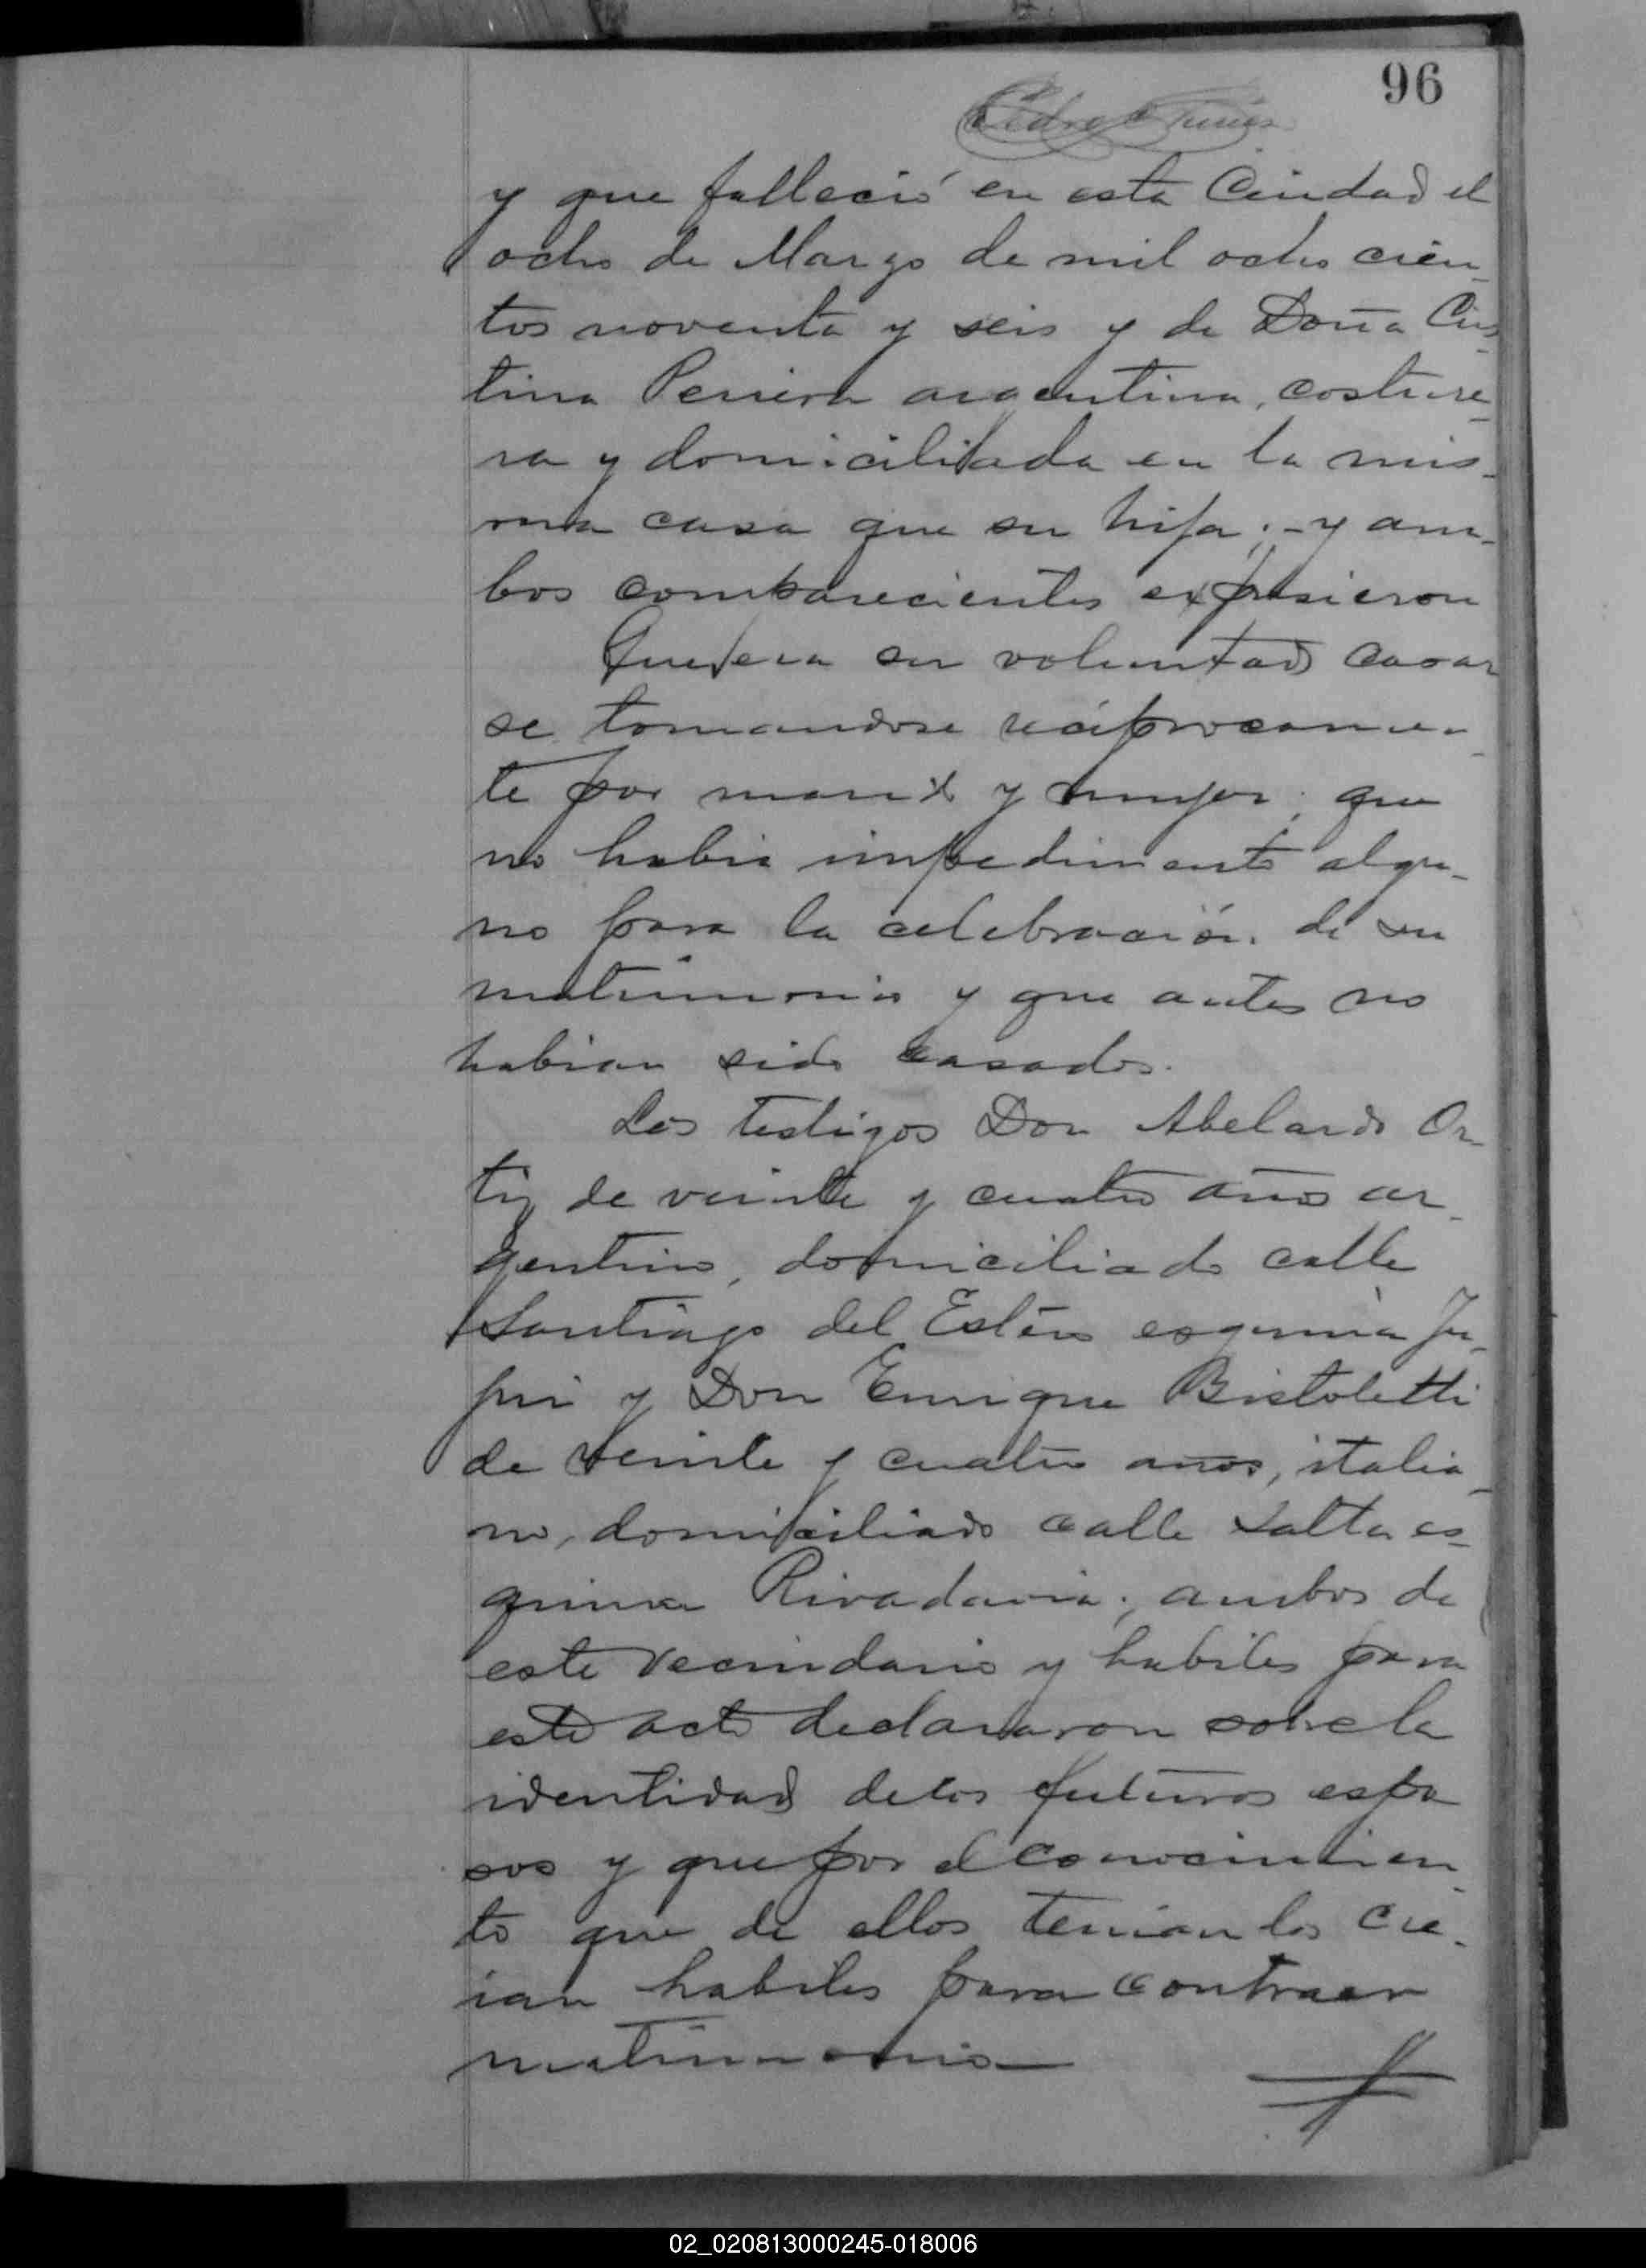 96
y que falleció en esta Ciudad el
ocho de Marzo de mil ocho cien-
tos noventa y seis y de Doña Cris-
tina Pereira argentina, costure-
ra y domiciliada en la mis-
ma casa que su hija;- y am-
bos comparecientes expusieron
Que era su voluntad casar
se tomandose reciprocamen-
te por marido y mujer; que
no habia impedimento algu-
no para la celebración de su
matrimonio y que antes no
habian sido casados.
Los testigos Don Abelardo Or-
tiz de veinte y cuatro años ar-
gentino, domiciliado calle
Santiago del Estero esquina Ju-
juí y Don Enrique Bistoletti
de veinte y cuatro años, italia-
no, domiciliado calle Salta es-
quina Rivadavia; ambos de
este vecindario y habiles para
este acto declararon sobre la
identidad de los futuros espo
sos y que por el conocimien-
to que de ellos tenian los cre-
ian habiles para contraer
matrimonio
02_020813000245-018006